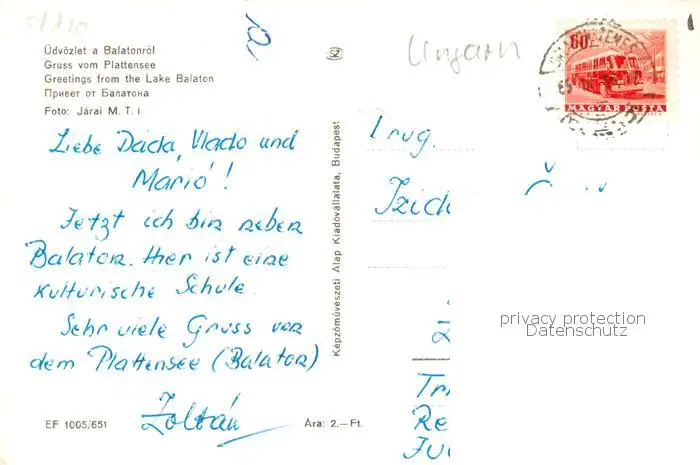 Üdvözlet a Balatonról
Gruss vom Plattensee
Greetings from the Lake Balaton
Привет от Балатона
Foto: Járai M. T. I.
Liebe Dacka, Vlado und
Mario!
Jetzt ich bin neben
Balaton. Hier ist eine
kulturische Schule.
Sehr viele Gruss von
dem Plattensee (Balaton)
Zoltán
EF 1005/651
Ára: 2.—Ft.
Képzőművészeti Alap Kiadóvállalata, Budapest
Ungarn
60f
MAGYAR POSTA
Drug.
Izid
privacy protection
Datenschutz
Tr
Re
Ju